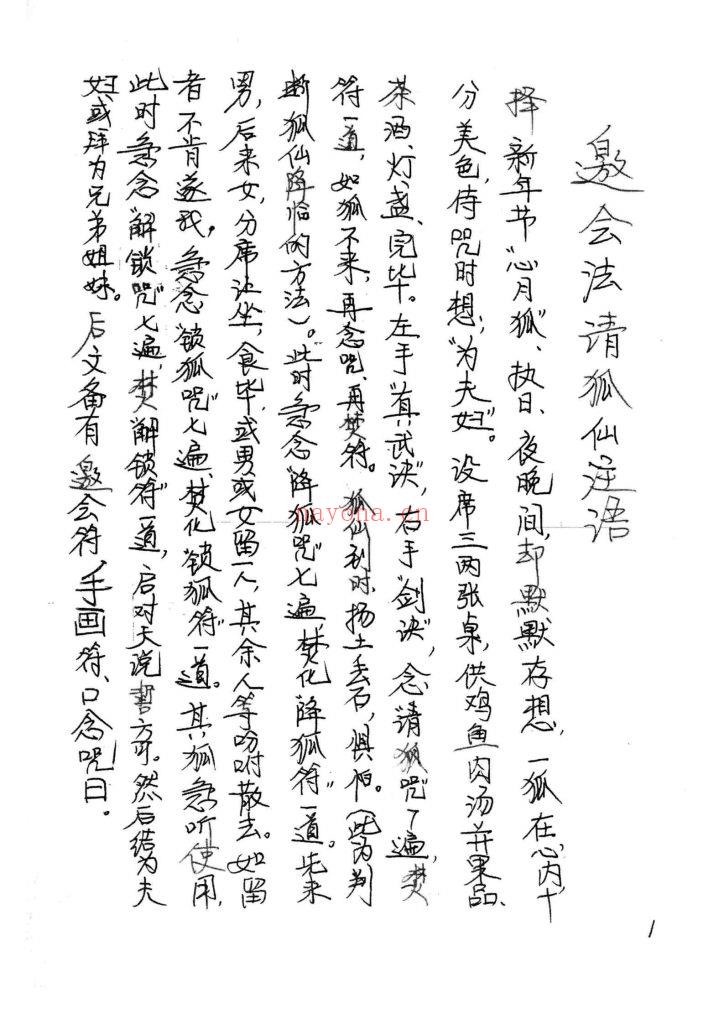 邀会法请狐仙注语
择新年节“心月狐”、执日、夜晚间，却默默存想，一狐在心内，十
分美色，侍咒时想，“为夫妇”。设席三两张桌，供鸡鱼肉汤并果品、
茶酒、灯盏、完毕。左手“真武诀”，右手“剑诀”，念“请狐咒”了遍，焚
符一道，如狐不来，再念咒、再焚符。狐仙到时，扬土丢石，惧怕。（此为判
断狐仙降临的方法）。此时急念“降狐咒”七遍，焚化“降狐符”一道。先来
男，后来女，分席让坐，食毕，或男或女留一人，其余人等吩咐散去。如留
者不肯遂我，急念“锁狐咒”七遍，焚化“锁狐符”一道。其狐急听使用，
此时急念“解锁咒”七遍，焚“解锁符”一道，启对天说誓方可。然后结为夫
妇或拜为兄弟姐妹。后文备有邀会符，手画符、口念咒曰。
nayona.cn
1